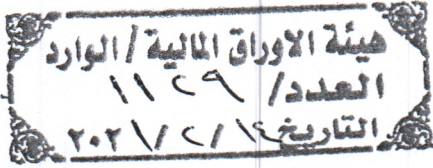 هيئة الاوراق المالية / الوارد
العدد/ ١١٢٩
التاريخ ١٤/ ٢/ ٢٠٢١